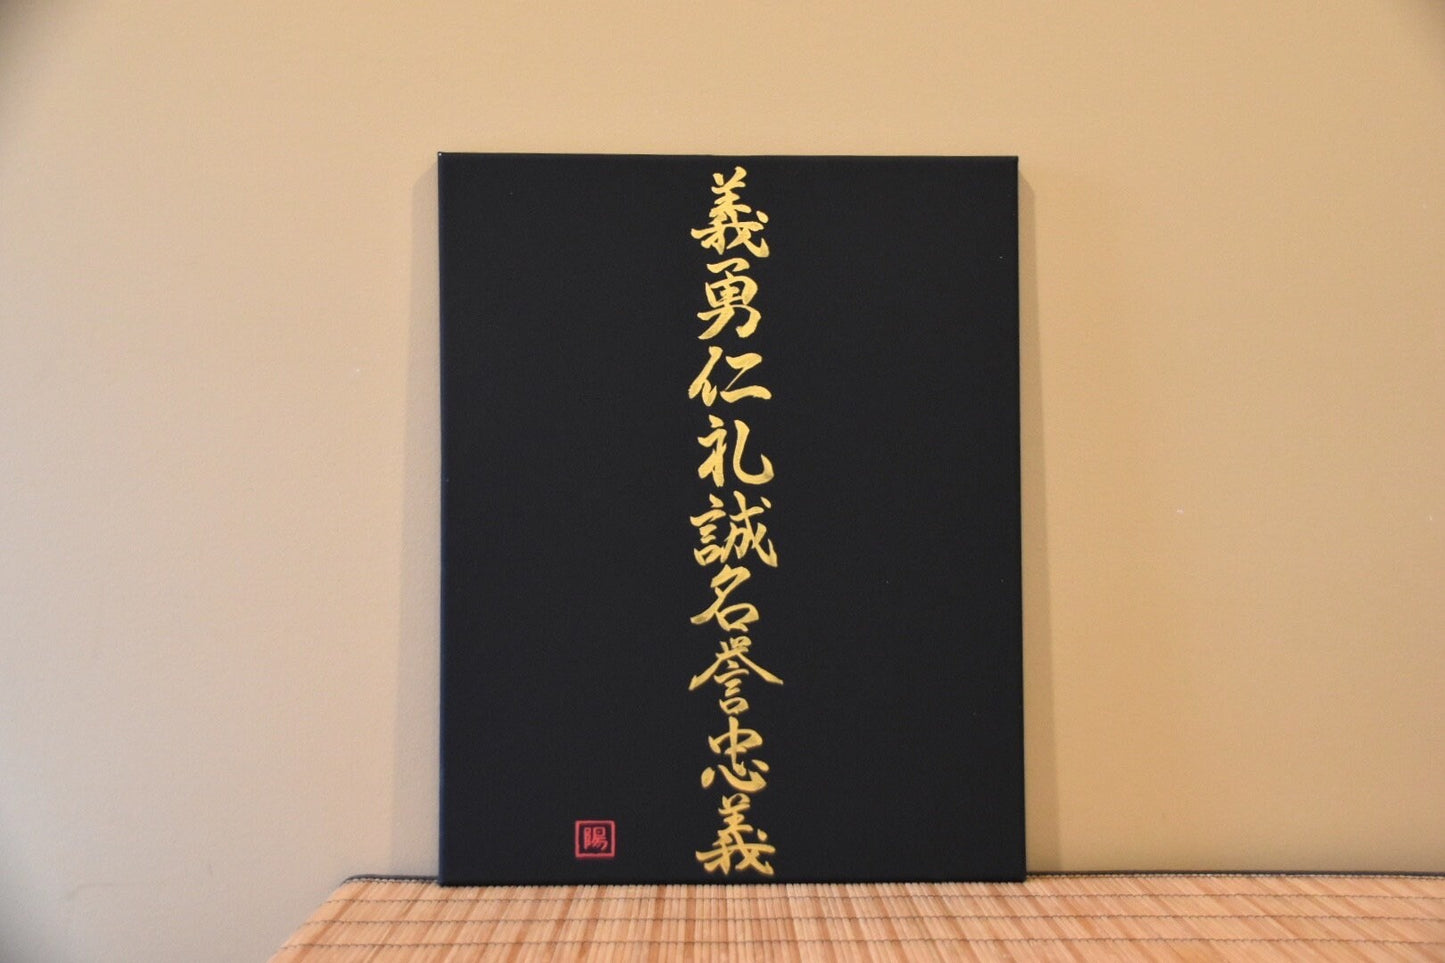 義勇仁礼誠名誉忠義
陽